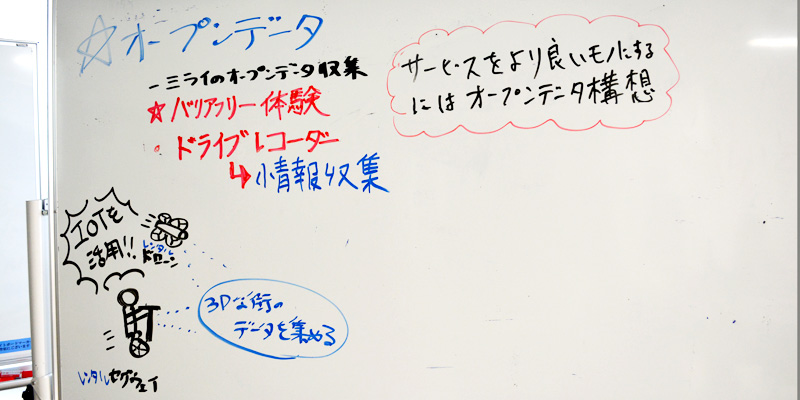 ☆オープンデータ
－ミライのオープンデータ収集
☆バリアフリー体験
・ドライブレコーダー
↳情報収集
サービスをより良いモノにする
にはオープンデータ構想
IOTを
活用!!
レンタル
ドローン
3Dな街の
データを集める
レンタルセグウェイ